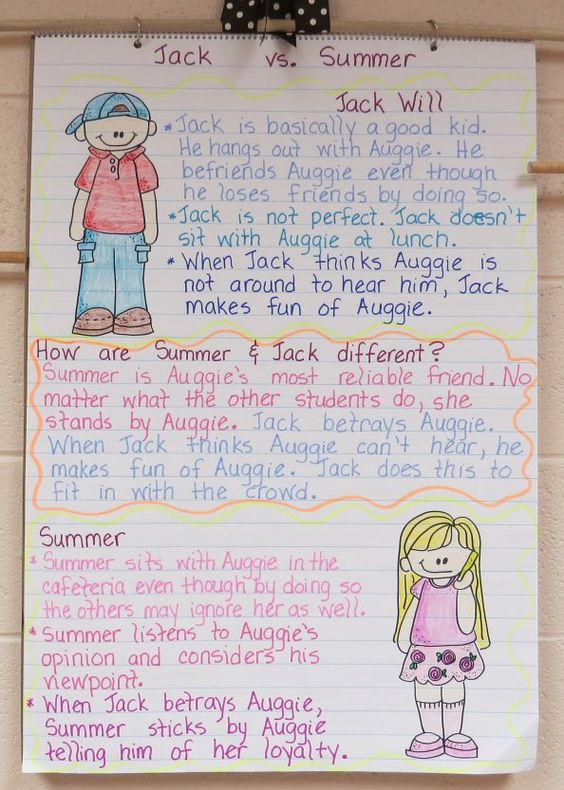 Jack vs. Summer
Jack Will
* Jack is basically a good kid.
He hangs out with Auggie. He
befriends Auggie even though
he loses friends by doing so.
* Jack is not perfect. Jack doesn't
sit with Auggie at lunch.
* When Jack thinks Auggie is
not around to hear him, Jack
makes fun of Auggie.
How are Summer & Jack different?
Summer is Auggie's most reliable friend. No
matter what the other students do, she
stands by Auggie. Jack betrays Auggie.
When Jack thinks Auggie can't hear, he
makes fun of Auggie. Jack does this to
fit in with the crowd.
Summer
* Summer sits with Auggie in the
cafeteria even though by doing so
the others may ignore her as well.
* Summer listens to Auggie's
opinion and considers his
viewpoint.
* When Jack betrays Auggie,
Summer sticks by Auggie
telling him of her loyalty.